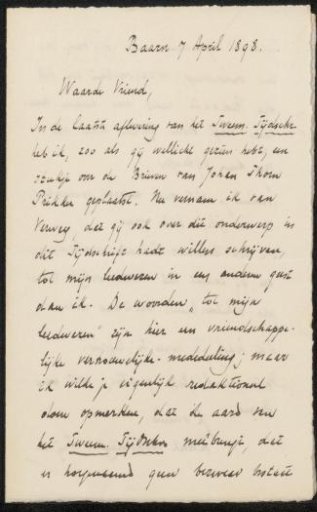 Baarn 7 April 1898.
Waarde Vriend,
In de laatste aflevering van het Tweem. Tijdschr.
heb ik, zoo als gij wellicht gezien hebt, een
stukje over de Brieven van Johan Thorn
Prikker geplaatst. Nu vernam ik van
Verwey, dat gij ook over dit onderwerp in
dit Tijdschrift hadt willen schrijven,
tot mijn leedwezen in een andere geest
dan ik. De woorden „tot mijn
leedwezen" zijn hier een vriendschappe-
lijke vertrouwelijke mededeeling; maar
ik wilde je eigenlijk redaktioneel
doen opmerken, dat de aard van
het Tweem. Tijdschr. meêbrengt, dat
er hoegenaamd geen bezwaar bestaat